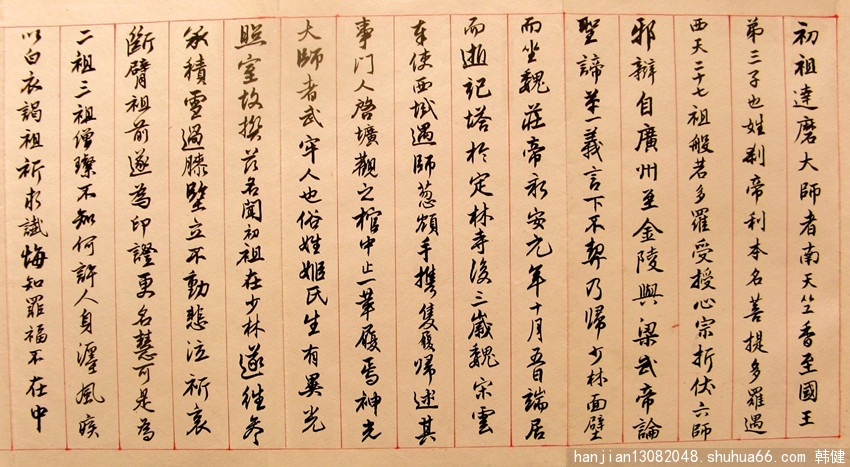 初祖達磨大師者南天竺香至國王
弟三子也姓刹帝利本名菩提多羅遇
西天二十七祖般若多羅受授心宗折伏六師
邪辯自廣州至金陵與梁武帝論
聖諦第一義言下不契乃歸少林面壁
而坐魏莊帝永安元年十月五日端居
而逝記塔於定林寺後三歲魏宋雲
奉使西域遇師葱嶺手携隻履歸述其
事门人啓壙觀之棺中止一革履焉神光
大師者武牢人也俗姓姬氏生有異光
照室故撰茲名聞初祖在少林遂往參
承積雪過膝堅立不動悲泣祈哀
断臂祖前遂為印證更名慧可是為
二祖三祖僧璨不知何許人身瀍風疾
以白衣謁祖祈求讖悔知罪福不在中
hanjian13082048.shuhua66.com 韩健